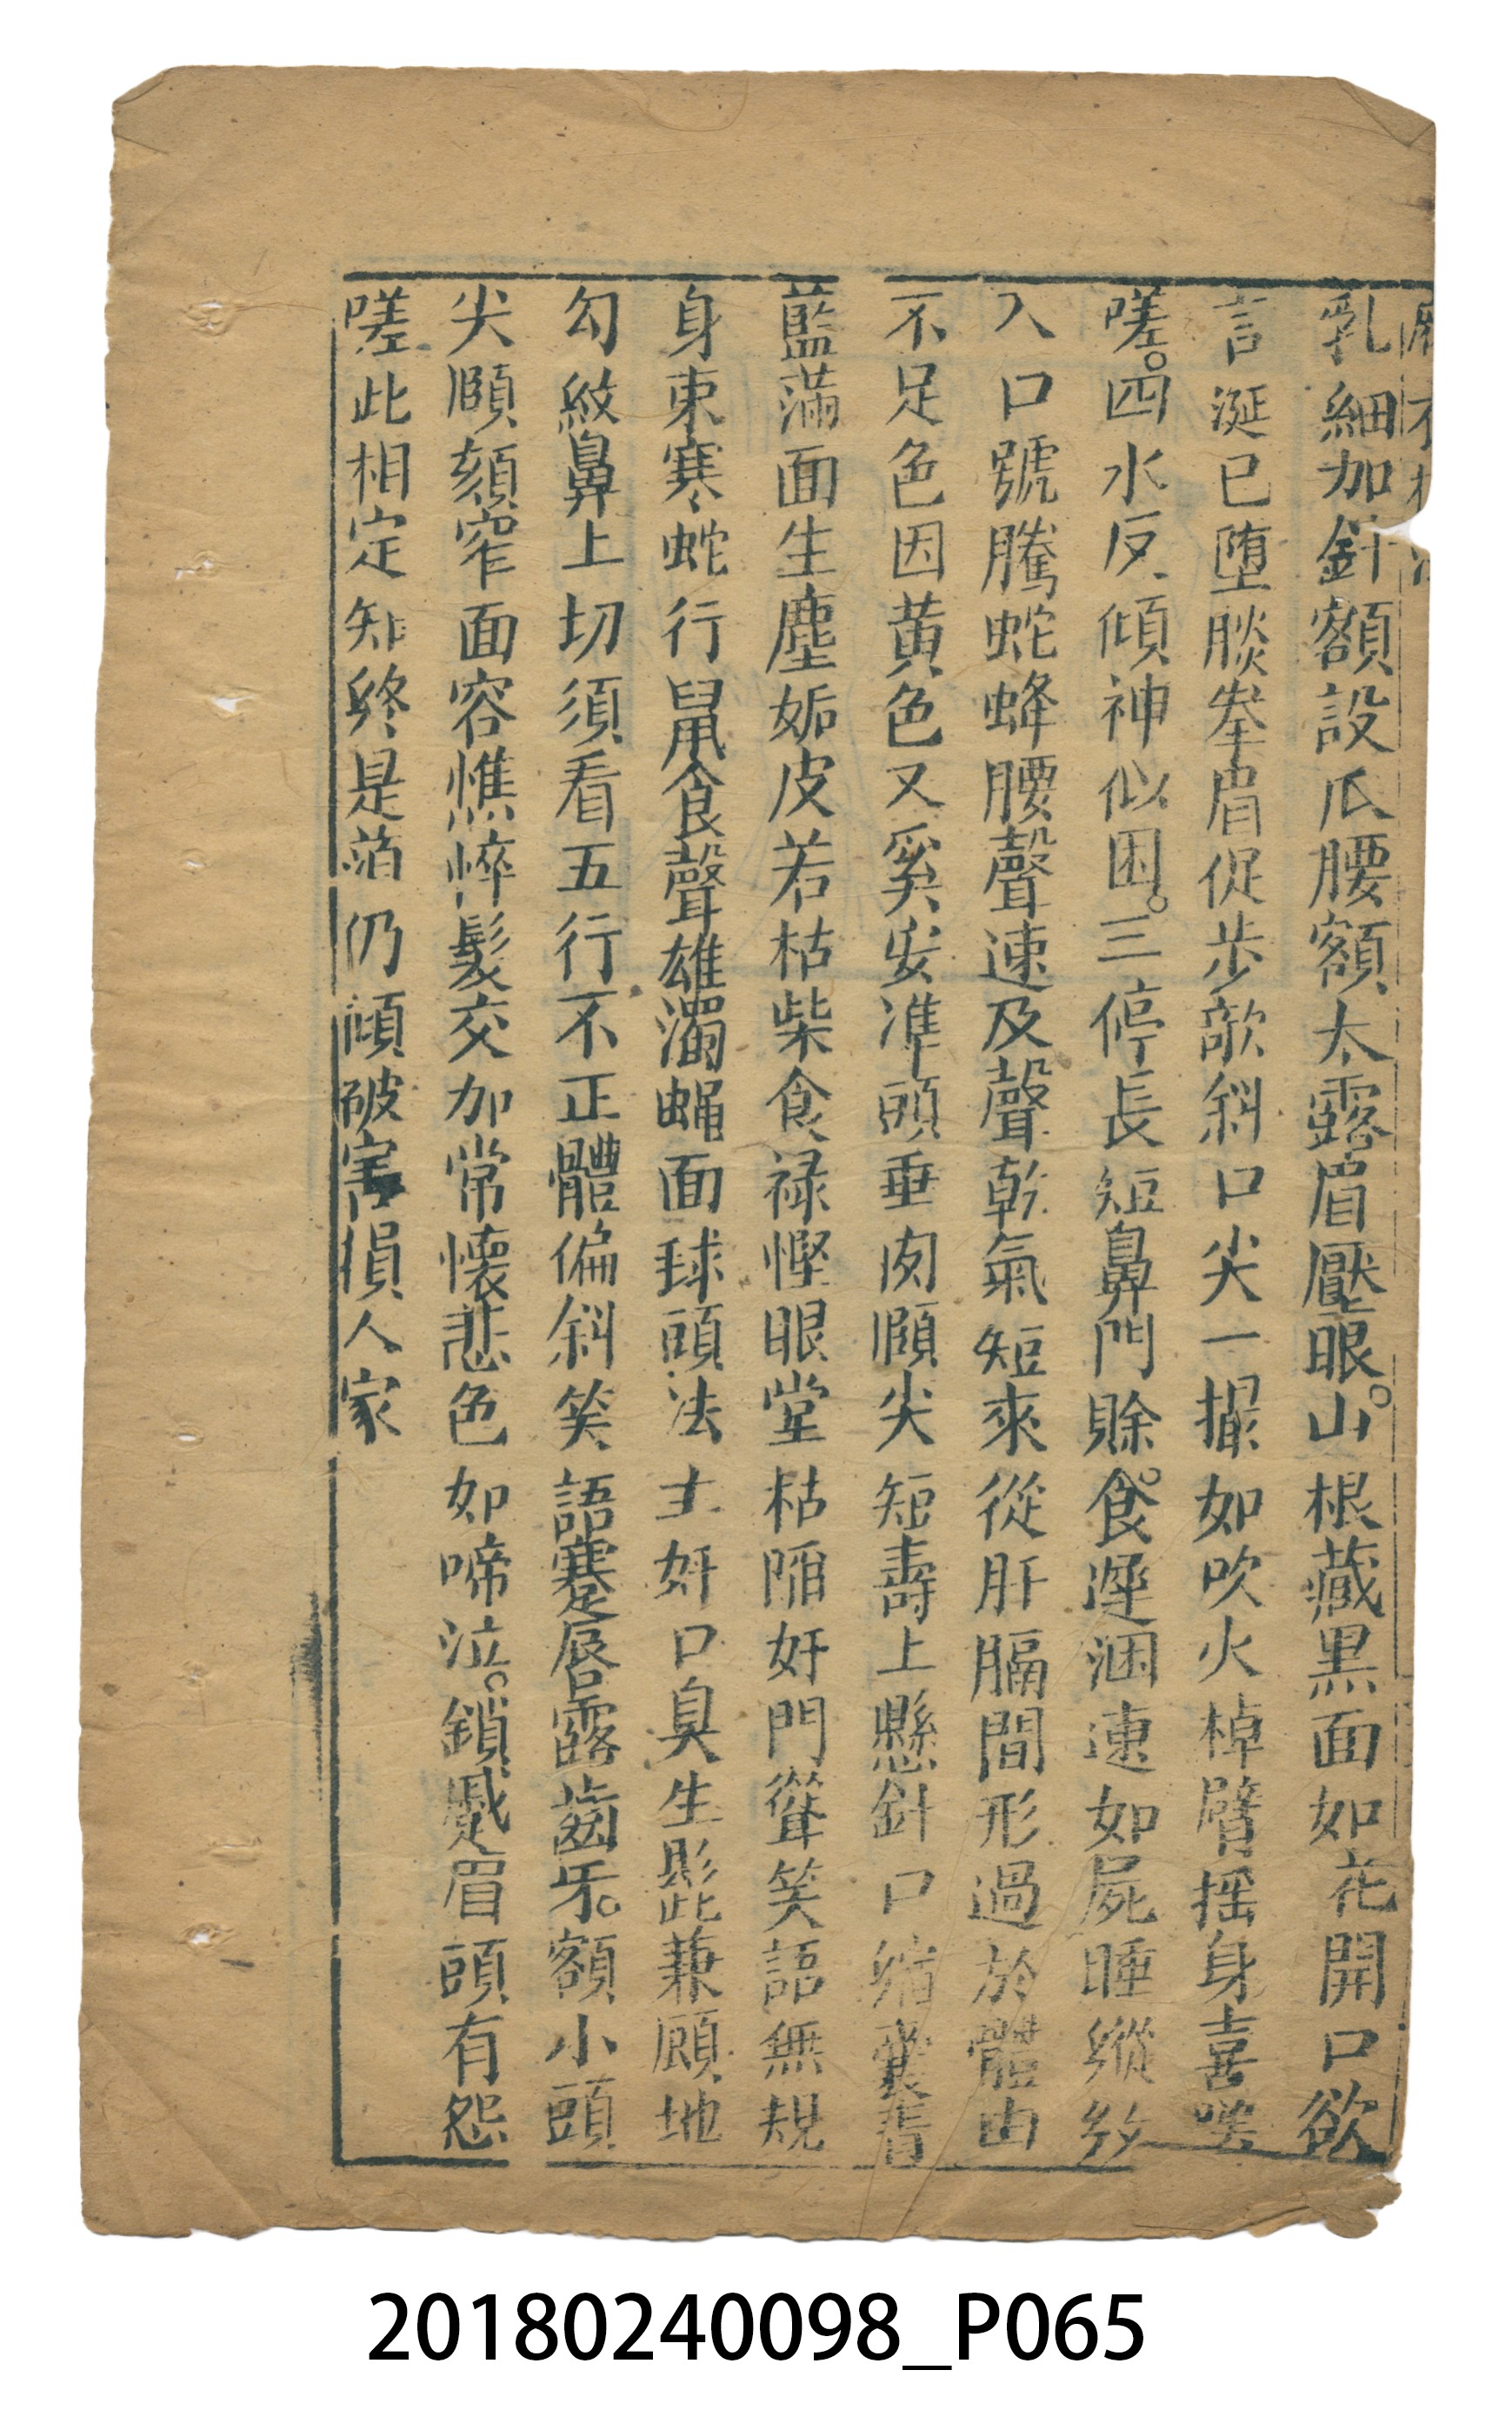 乳細加針額設瓜腰額太露眉壓眼。山根藏黑面如花開口欲
言涎已墮睒拳眉促步欹斜口尖一撮如吹火棹臂揺身喜嗟
嗟。四水反傾神似困。三停長短鼻門賖。食遲涸速如屍睡縱紋
入口號騰蛇蜂腰聲速及聲乾氣短來從肝膈間形過於體由
不足色因黄色又奚安準頭垂肉頤尖短壽上懸針口縮囊脊
藍滿面生塵姤皮若枯柴食禄慳眼堂枯陷奸門聳笑語無規
身束寒蛇行鼠食聲雄濁蝿面球頭法主奸口臭生髭兼願地
勾紋鼻上切須看五行不正體偏斜笑語蹇唇露齒牙。額小頭
尖頤頦窄面容憔悴髮交加常懷悲色如啼泣。鎖蹙眉頭有怨
嗟此相定知終是箔仍傾破害損人家
20180240098_P065